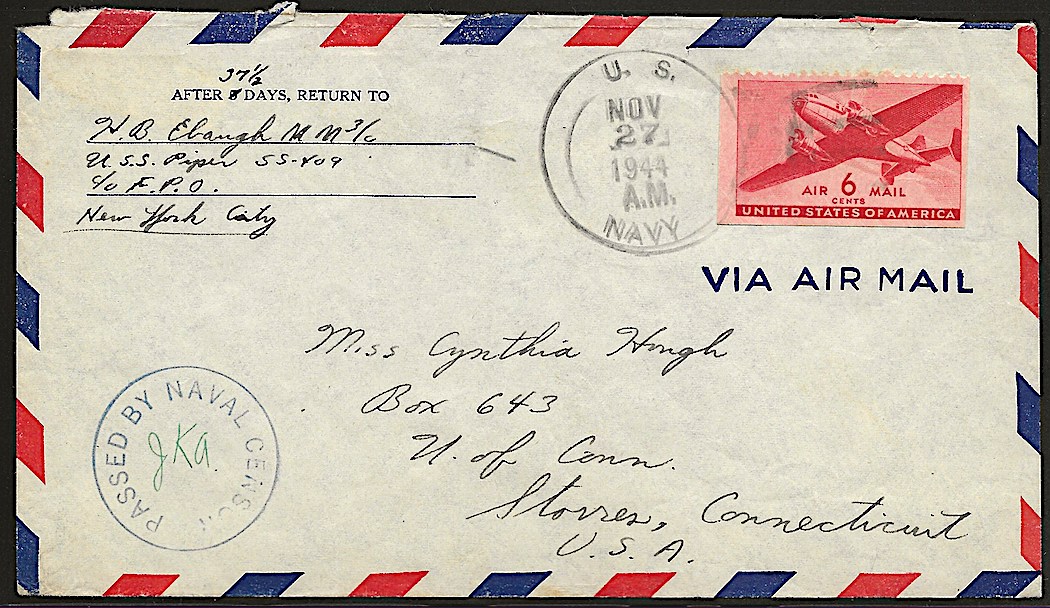 37 1/2
AFTER 5 DAYS, RETURN TO
H. B. Ebaugh M M 3/c
U.S.S. Piper SS-409
c/o F.P.O.
New York City
U. S.
NOV
27
1944
A.M.
NAVY
AIR 6 MAIL
CENTS
UNITED STATES OF AMERICA
VIA AIR MAIL
Miss Cynthia Hough
Box 643
U. of Conn.
Storres, Connecticuit
U.S.A.
PASSED BY NAVAL CENSOR
JKA.